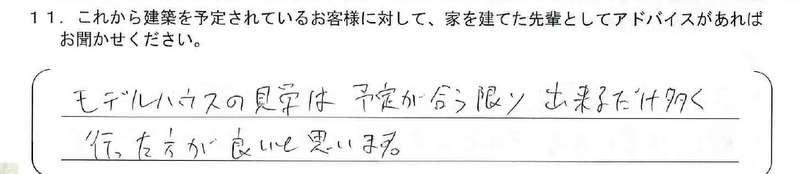 １１．これから建築を予定されているお客様に対して、家を建てた先輩としてアドバイスがあれば
お聞かせください。
モデルハウスの見学は 予定が合う限り 出来るだけ多く
行った方が良いと思います。